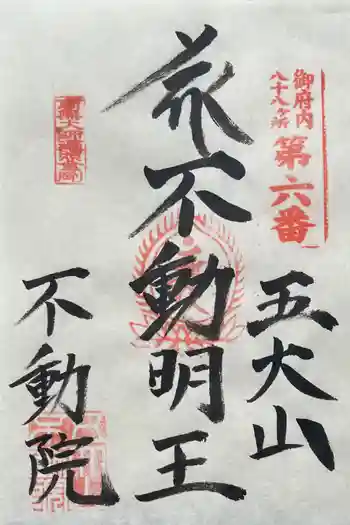 御府内
八十八ヶ所
第六番
五大山
荒不動明王
不動院